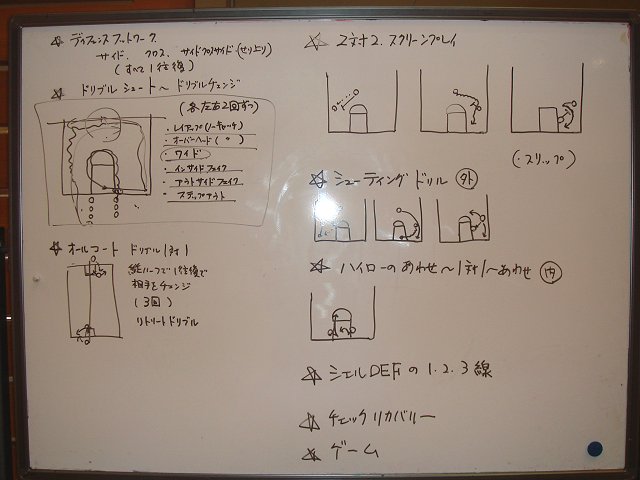 ☆ ディフェンスフットワーク
サイド、クロス、サイドクロスサイド、(せり上り)
(すべて1往復)
☆ ドリブルシュート〜ドリブルチェンジ
(各左右2回ずつ)
・レイアップ(ノーチャージ)
・オーバーヘッド( 〃 )
・ワイド
・インサイドフェイク
・アウトサイドフェイク
・ステップアウト
☆ オールコート ドリブル1対1
縦ハーフで1往復で
相手をチェンジ
(3回)
リトリートドリブル
☆ 2対2.スクリーンプレイ
(・スリップ)
☆ シューティングドリル 外
☆ ハイローのあわせ〜1対1〜あわせ 内
☆ シェルDEFの1.2.3線
☆ チェックリカバリー
☆ ゲーム